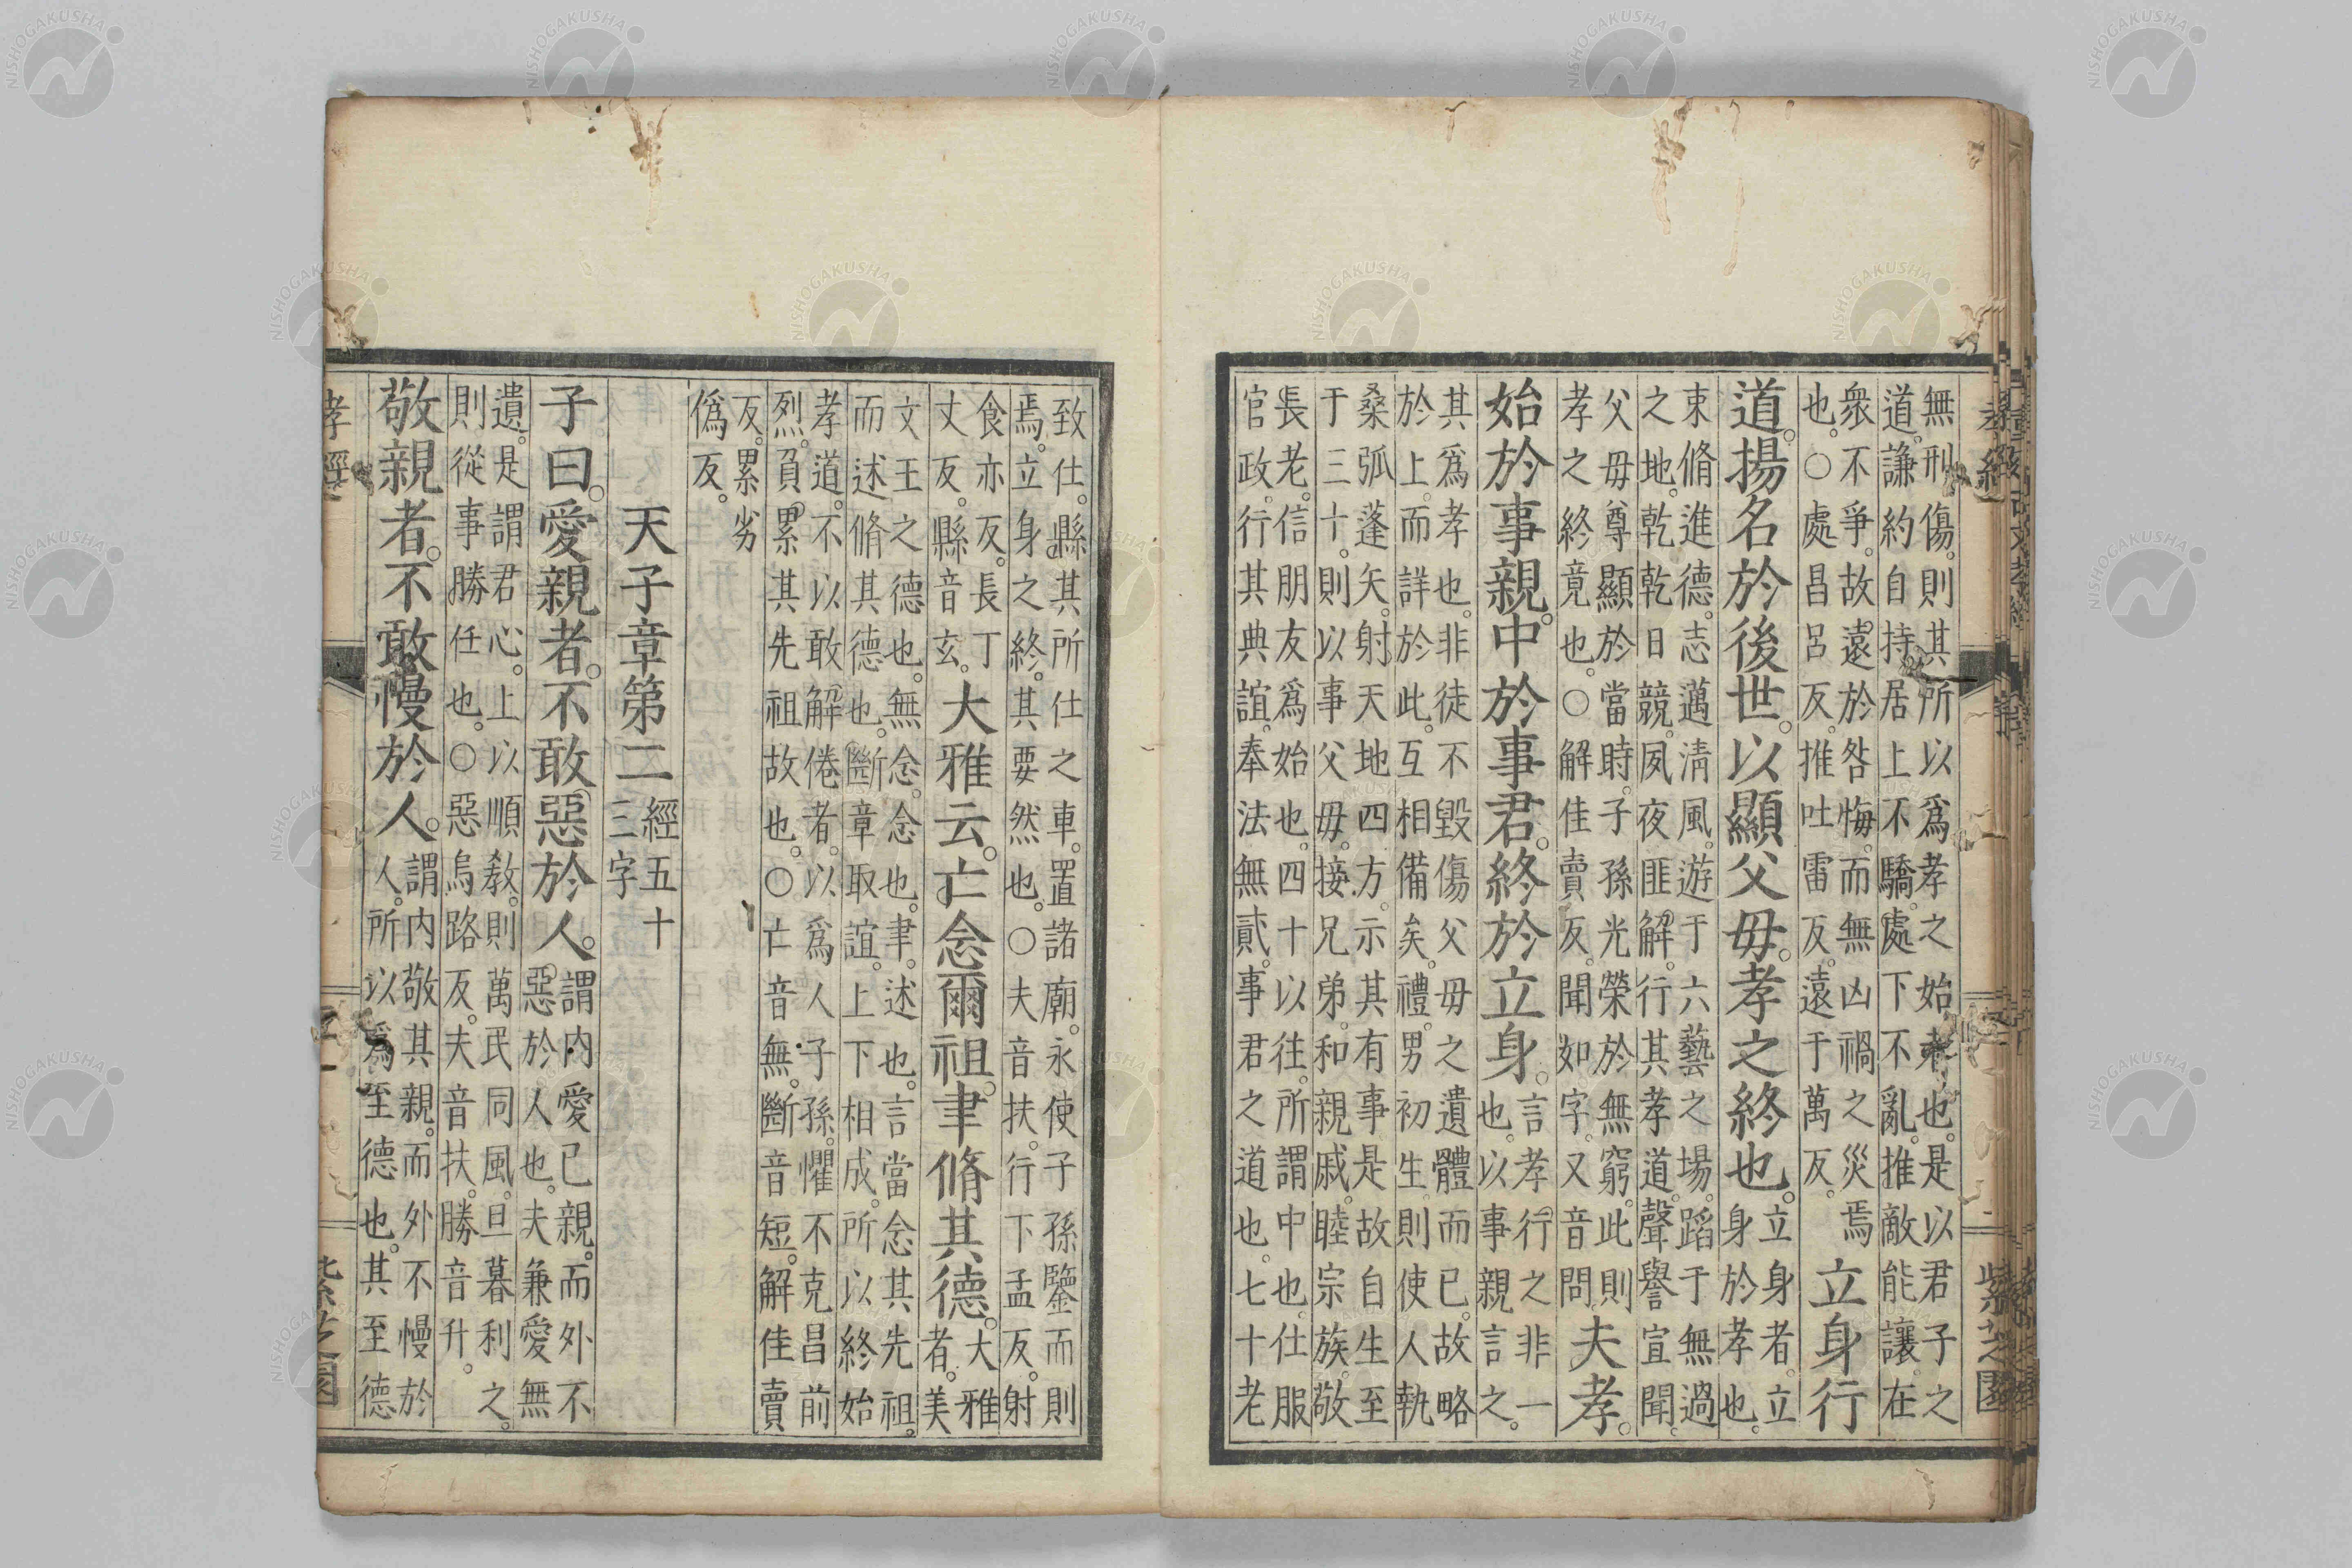 無刑傷。則其所以爲孝之始者也。是以君子之
道。謙約自持。居上不驕。處下不亂。推敵能讓。在
衆不爭。故遠於咎悔。而無凶禍之災焉
也。○處昌呂反。推吐雷反。遠于萬反。
立身行
道。揚名於後世。以顯父毋。孝之終也。
立身者。立
身於孝也。
束脩進德。志邁淸風。遊于六藝之場。蹈于無過
之地。乾乾日競。夙夜匪解。行其孝道。聲譽宣聞。
父毋尊顯於當時。子孫光榮於無窮。此則
孝之終竟也。○解佳賣反。聞如字。又音問。
夫孝。
始於事親。中於事君。終於立身。
言孝行之非一
也。以事親言之。
其爲孝也。非徒不毀傷父毋之遺體而已。故略
於上。而詳於此。互相備矣。禮。男初生。則使人執
桑弧蓬矢。射天地四方。示其有事。是故自生至
于三十。則以事父毋。接兄弟。和親戚。睦宗族。敬
長老。信朋友爲始也。四十以往。所謂中也。仕服
官政。行其典誼。奉法無貳。事君之道也。七十老
致仕。縣其所仕之車。置諸廟。永使子孫鑒而則
焉。立身之終。其要然也。○夫音扶。行下孟反。射
食亦反。長丁
丈反。縣音玄。
大雅云。亡念爾祖。聿脩其德。
大雅
者。美
文王之德也。無念。念也。聿。述也。言當念其先祖。
而述脩其德也。斷章取誼。上下相成。所以終始
孝道。不以敢解倦者。以爲人子孫。懼不克昌前
烈。負累其先祖故也。○亡音無。斷音短。解佳賣
反。累劣
僞反。
天子章第二
經五十
三字
子曰。愛親者。不敢惡於人。
謂內愛已親。而外不
惡於人也。夫兼愛無
遺。是謂君心。上以順教。則萬民同風。旦暮利之。
則從事勝任也。○惡烏路反。夫音扶。勝音升。
敬親者。不敢慢於人。
謂內敬其親。而外不慢於
人。所以爲至德也。其至德
孝經
紫芝園
孝經
紫芝園